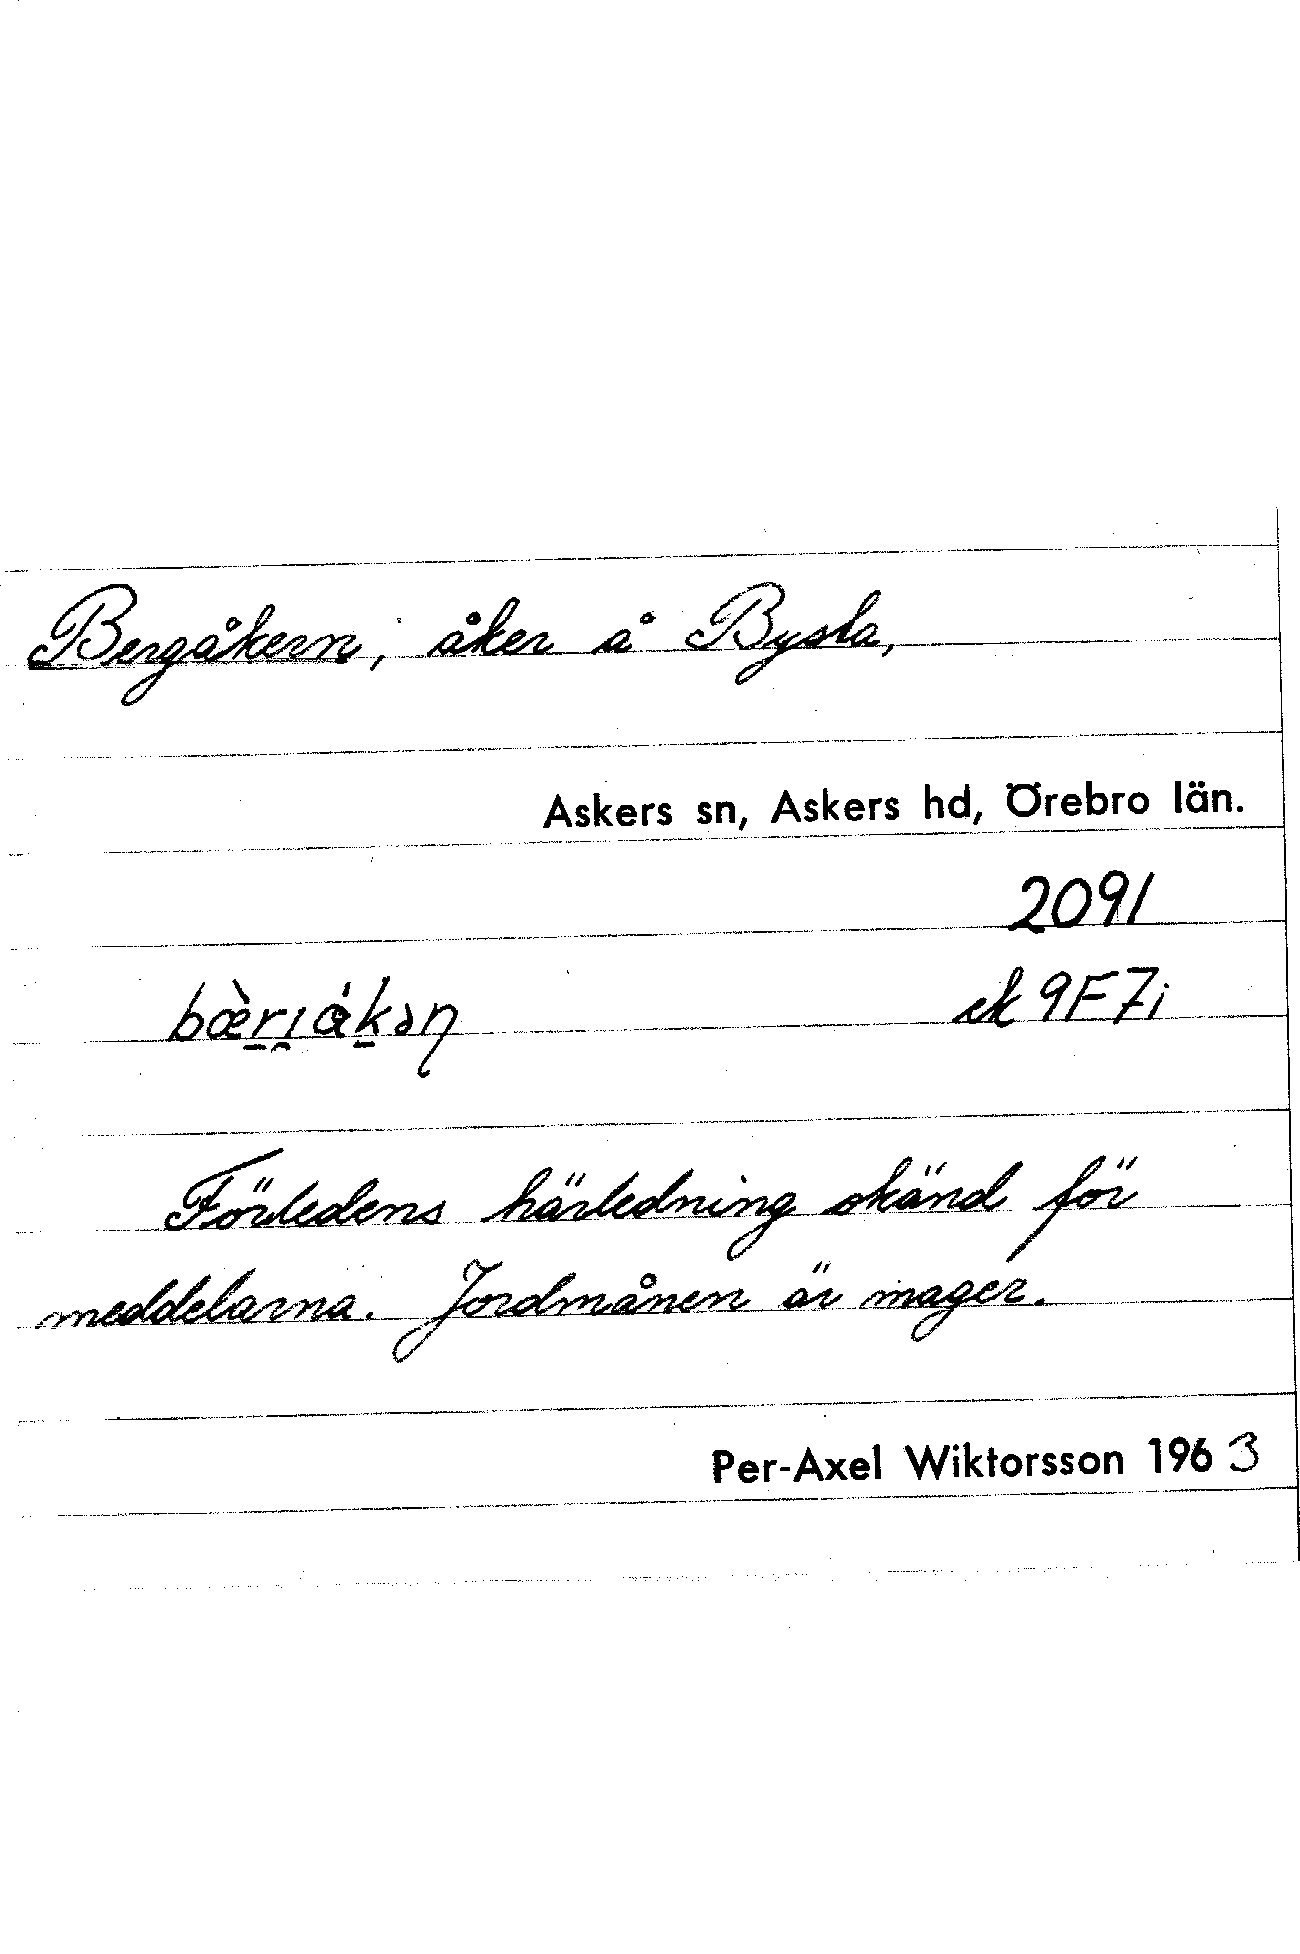 Bergåkern, åker å Bysta,
Askers sn, Askers hd, Örebro län.
2091
ek 9F7i
Förledens härledning okänd för
meddelarna. Jordmånen är mager.
Per-Axel Wiktorsson 1963